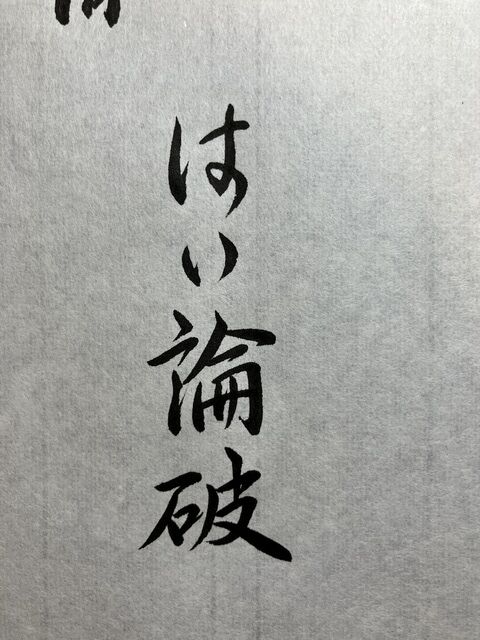 はい論破